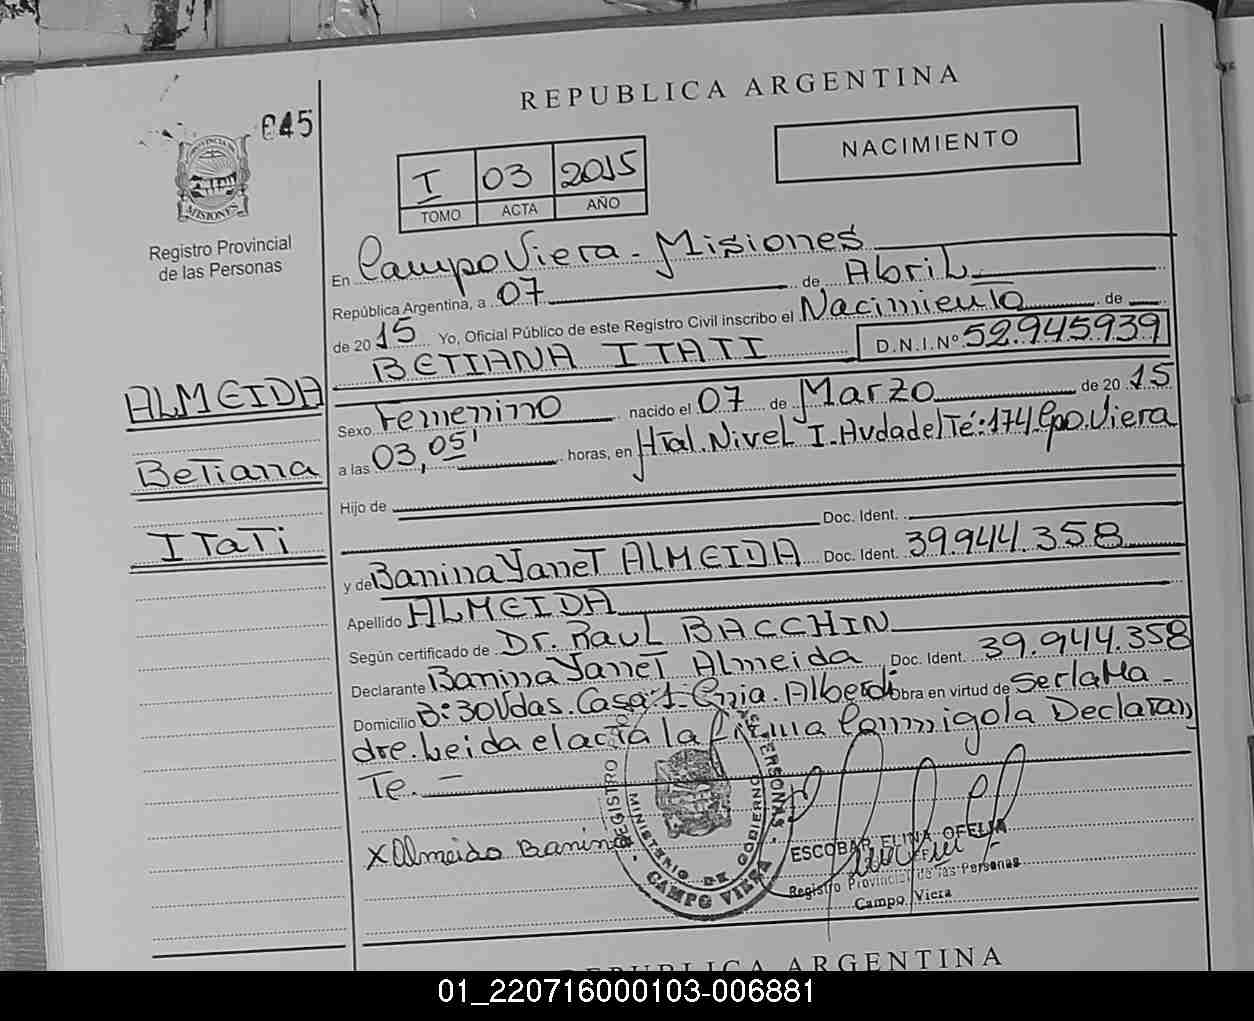 REPUBLICA ARGENTINA
045
NACIMIENTO
I 03 2015
TOMO ACTA AÑO
PROVINCIA DE
MISIONES
Registro Provincial
de las Personas
En Campo Viera - Misiones
República Argentina, a 07 de Abril
de 2015 Yo, Oficial Público de este Registro Civil inscribo el Nacimiento de
BETIANA ITATI D.N.I.Nº 52.945939
ALMEIDA
Betiana
ITaTi
Sexo Femenino nacido el 07 de Marzo de 2015
a las 03,05' horas, en Htal. Nivel I. Avda del Té: 174. Cpo. Viera
Hijo de
Doc. Ident.
y de Banina Yanet ALMEIDA Doc. Ident. 39.944.358
Apellido ALMEIDA
Según certificado de Dr. Raul BACCHIN
Declarante Banina Yanet Almeida Doc. Ident. 39.944.358
Domicilio B: 30 Vdas. Casa 1 - Cnia. Alberdi Obra en virtud de Ser la Ma -
dre. Leida el acta la Firma Conmigo la Declaran
Te. -
X Almeida Banina
REGISTRO PERSONAS
MINISTERIO DE GOBIERNO
CAMPO VIERA
ESCOBAR ELINA OFELIA
Registro Provincial de las Personas
Campo Viera
REPUBLICA ARGENTINA
01_220716000103-006881